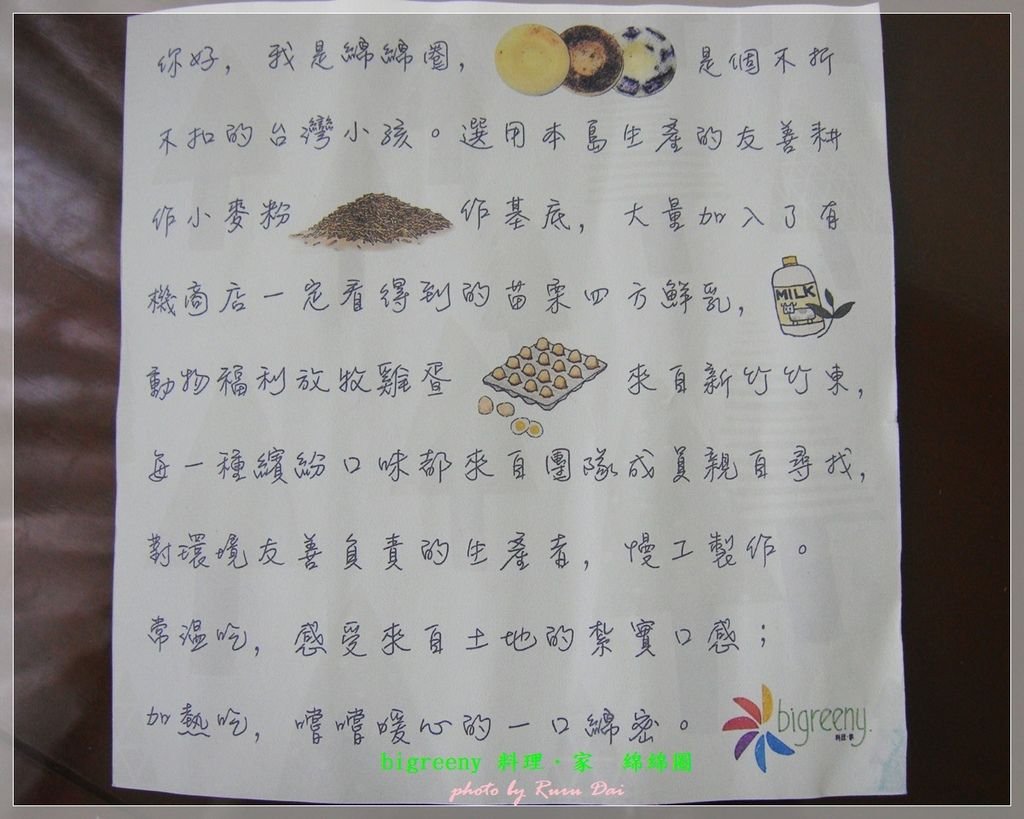 你好，我是綿綿圈，是個不折
不扣的台灣小孩。選用本島生產的友善耕
作小麥粉作基底，大量加入了有
機商店一定看得到的苗栗四方鮮乳，
MILK
動物福利放牧雞蛋來自新竹竹東，
每一種繽紛口味都來自團隊成員親自尋找，
對環境友善負責的生產者，慢工製作。
常溫吃，感受來自土地的紮實口感；
加熱吃，嚐嚐暖心的一口綿密。
bigreeny.
料理·家
bigreeny 料理·家 綿綿圈
photo by Ruru Dai